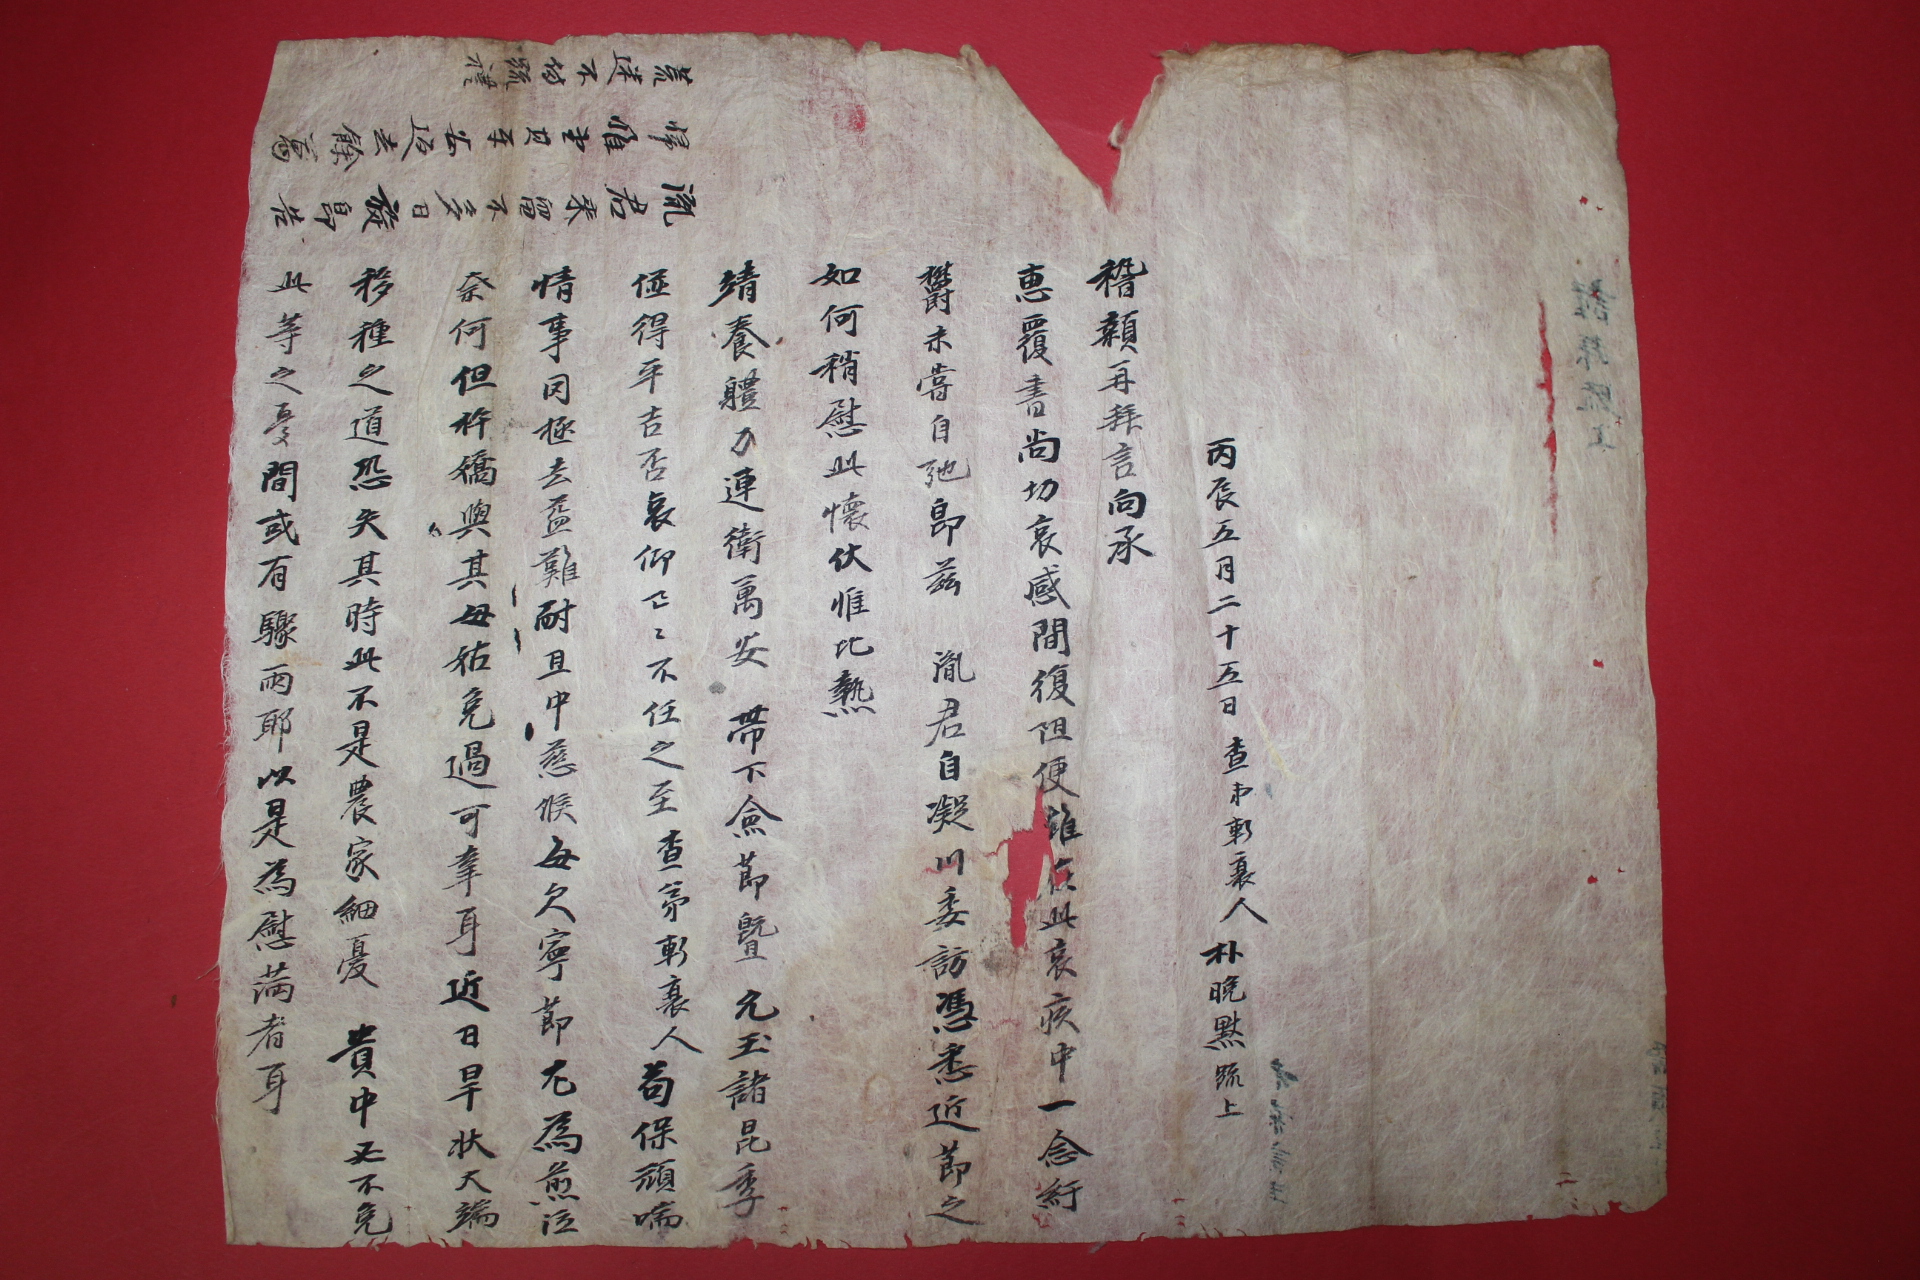 稽顙再拜言向承
惠覆書尚切哀感間復阻便雖在此哀疚中一念紆
欝未嘗自弛卽玆 胤君自凝川委訪憑悉近節之
如何稍慰此懷伏惟比熱
靖養體力連衛萬安 帶下僉節曁 允玉諸昆季
俱得平吉否哀仰區〻不任之至査弟斬衰人苟保頑喘
情事罔極去益難耐且中慈候每欠寧節尤為煎泣
奈何但婦與其母姑免過可幸耳近日旱狀天端
移種之道恐失其時此不是農家細憂 貴中又不免
此等之憂間或有驟雨耶以是為慰滿者耳
胤君來留不多日發卽告
歸悵
荒迷不備疏禮
丙辰五月二十五日 査弟斬衰人 朴晩默疏上